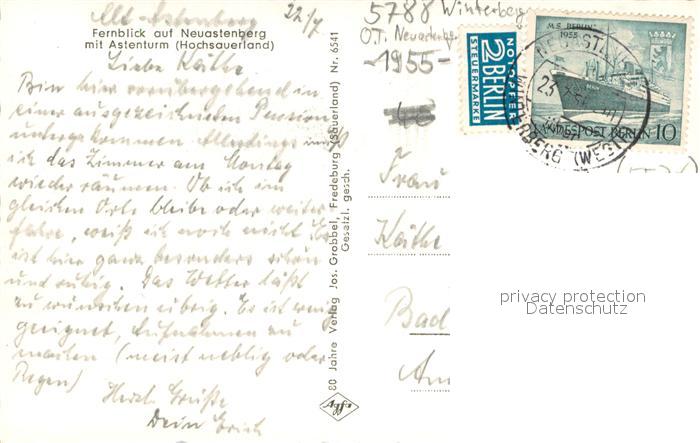 Alt-Astenberg 22/7
Fernblick auf Neuastenberg
mit Astenturm (Hochsauerland)
Liebe Käthe
Bin hier vorübergehend in
einer ausgezeichneten Pension
untergekommen. Allerdings muß
ich das Zimmer am Montag
wieder räumen. Ob ich im
gleichen Orte bleibe oder weiter
fahre, weiß ich noch nicht. Es
ist hier ganz besonders schön
und ruhig. Das Wetter läßt
zu wünschen übrig. Es ist wenig
geeignet, Aufnahmen zu
machen (meist neblig oder
Regen)
Herzl. Grüße
Dein Erich
80 Jahre Verlag Jos. Grobbel, Fredeburg (Sauerland) Nr. 6541
Gesetzl. gesch.
Agfa
5788 Winterberg
O.T. Neuastenbg.
-1955-
NOTOPFER
2 BERLIN
STEUERMARKE
M.S. "BERLIN"
1955
LANDESPOST BERLIN 10
NEUAST
23
(WESTF
Frau
Käthe
Bad
Am
privacy protection
Datenschutz